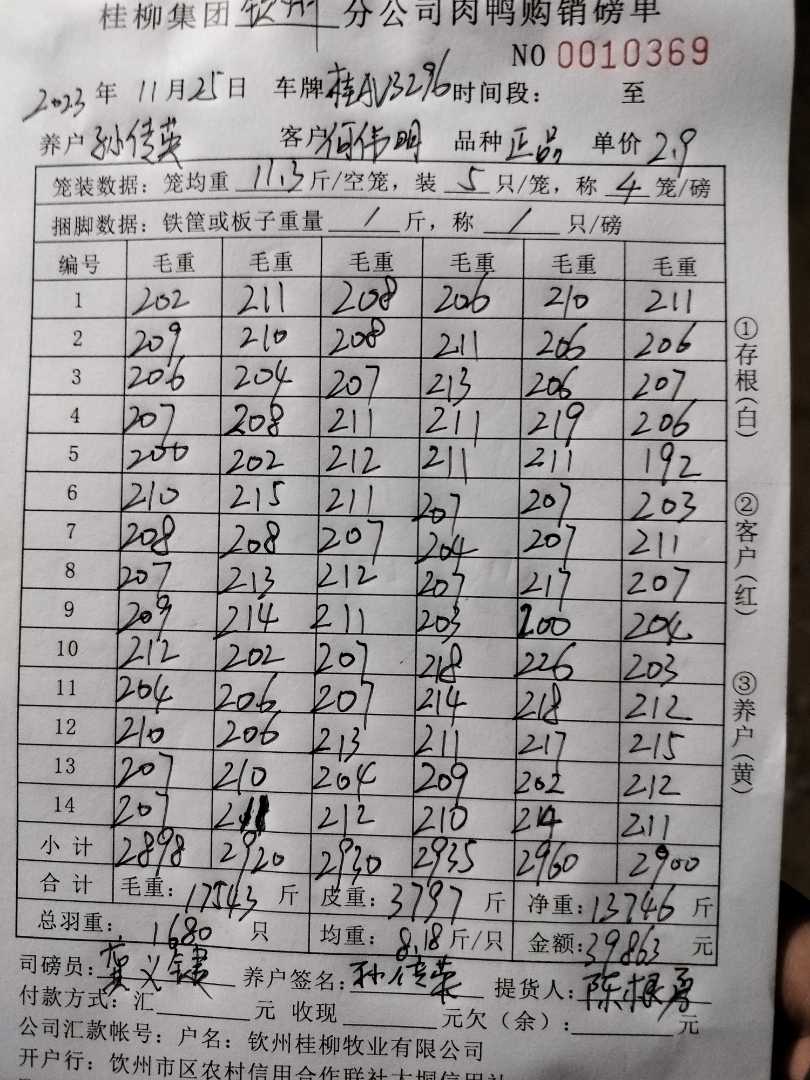 桂柳集团钦州分公司肉鸭购销磅单
NO 0010369
2023年 11月25日 车牌桂AV3296时间段： 至
养户 孙传英 客户何伟明 品种 正品 单价 2.9
笼装数据：笼均重 11.3 斤/空笼，装 5 只/笼，称 4 笼/磅
捆脚数据：铁筐或板子重量 / 斤，称 / 只/磅
编号 毛重 毛重 毛重 毛重 毛重 毛重
1 202 211 208 206 210 211
2 209 210 208 211 206 206
3 206 204 207 213 206 207
4 207 208 211 211 219 206
5 200 202 212 211 211 192
6 210 215 211 207 207 203
7 208 208 207 204 207 211
8 207 213 212 207 217 207
9 209 214 211 203 200 204
10 212 202 207 218 226 203
11 204 206 207 214 218 212
12 210 206 213 211 217 215
13 207 210 204 209 202 212
14 207 211 212 210 214 211
小计 2898 2920 2930 2935 2960 2900
合计 毛重：17543 斤 皮重：3797 斤 净重：13746 斤
总羽重：1680 只 均重：8.18斤/只 金额：39863 元
司磅员： 养户签名：孙传英 提货人：陈根勇
付款方式：汇 元 收现 元欠（余）： 元
公司汇款帐号：户名：钦州桂柳牧业有限公司
开户行：钦州市区农村信用合作联社大垌信用社
①存根（白）
②客户（红）
③养户（黄）